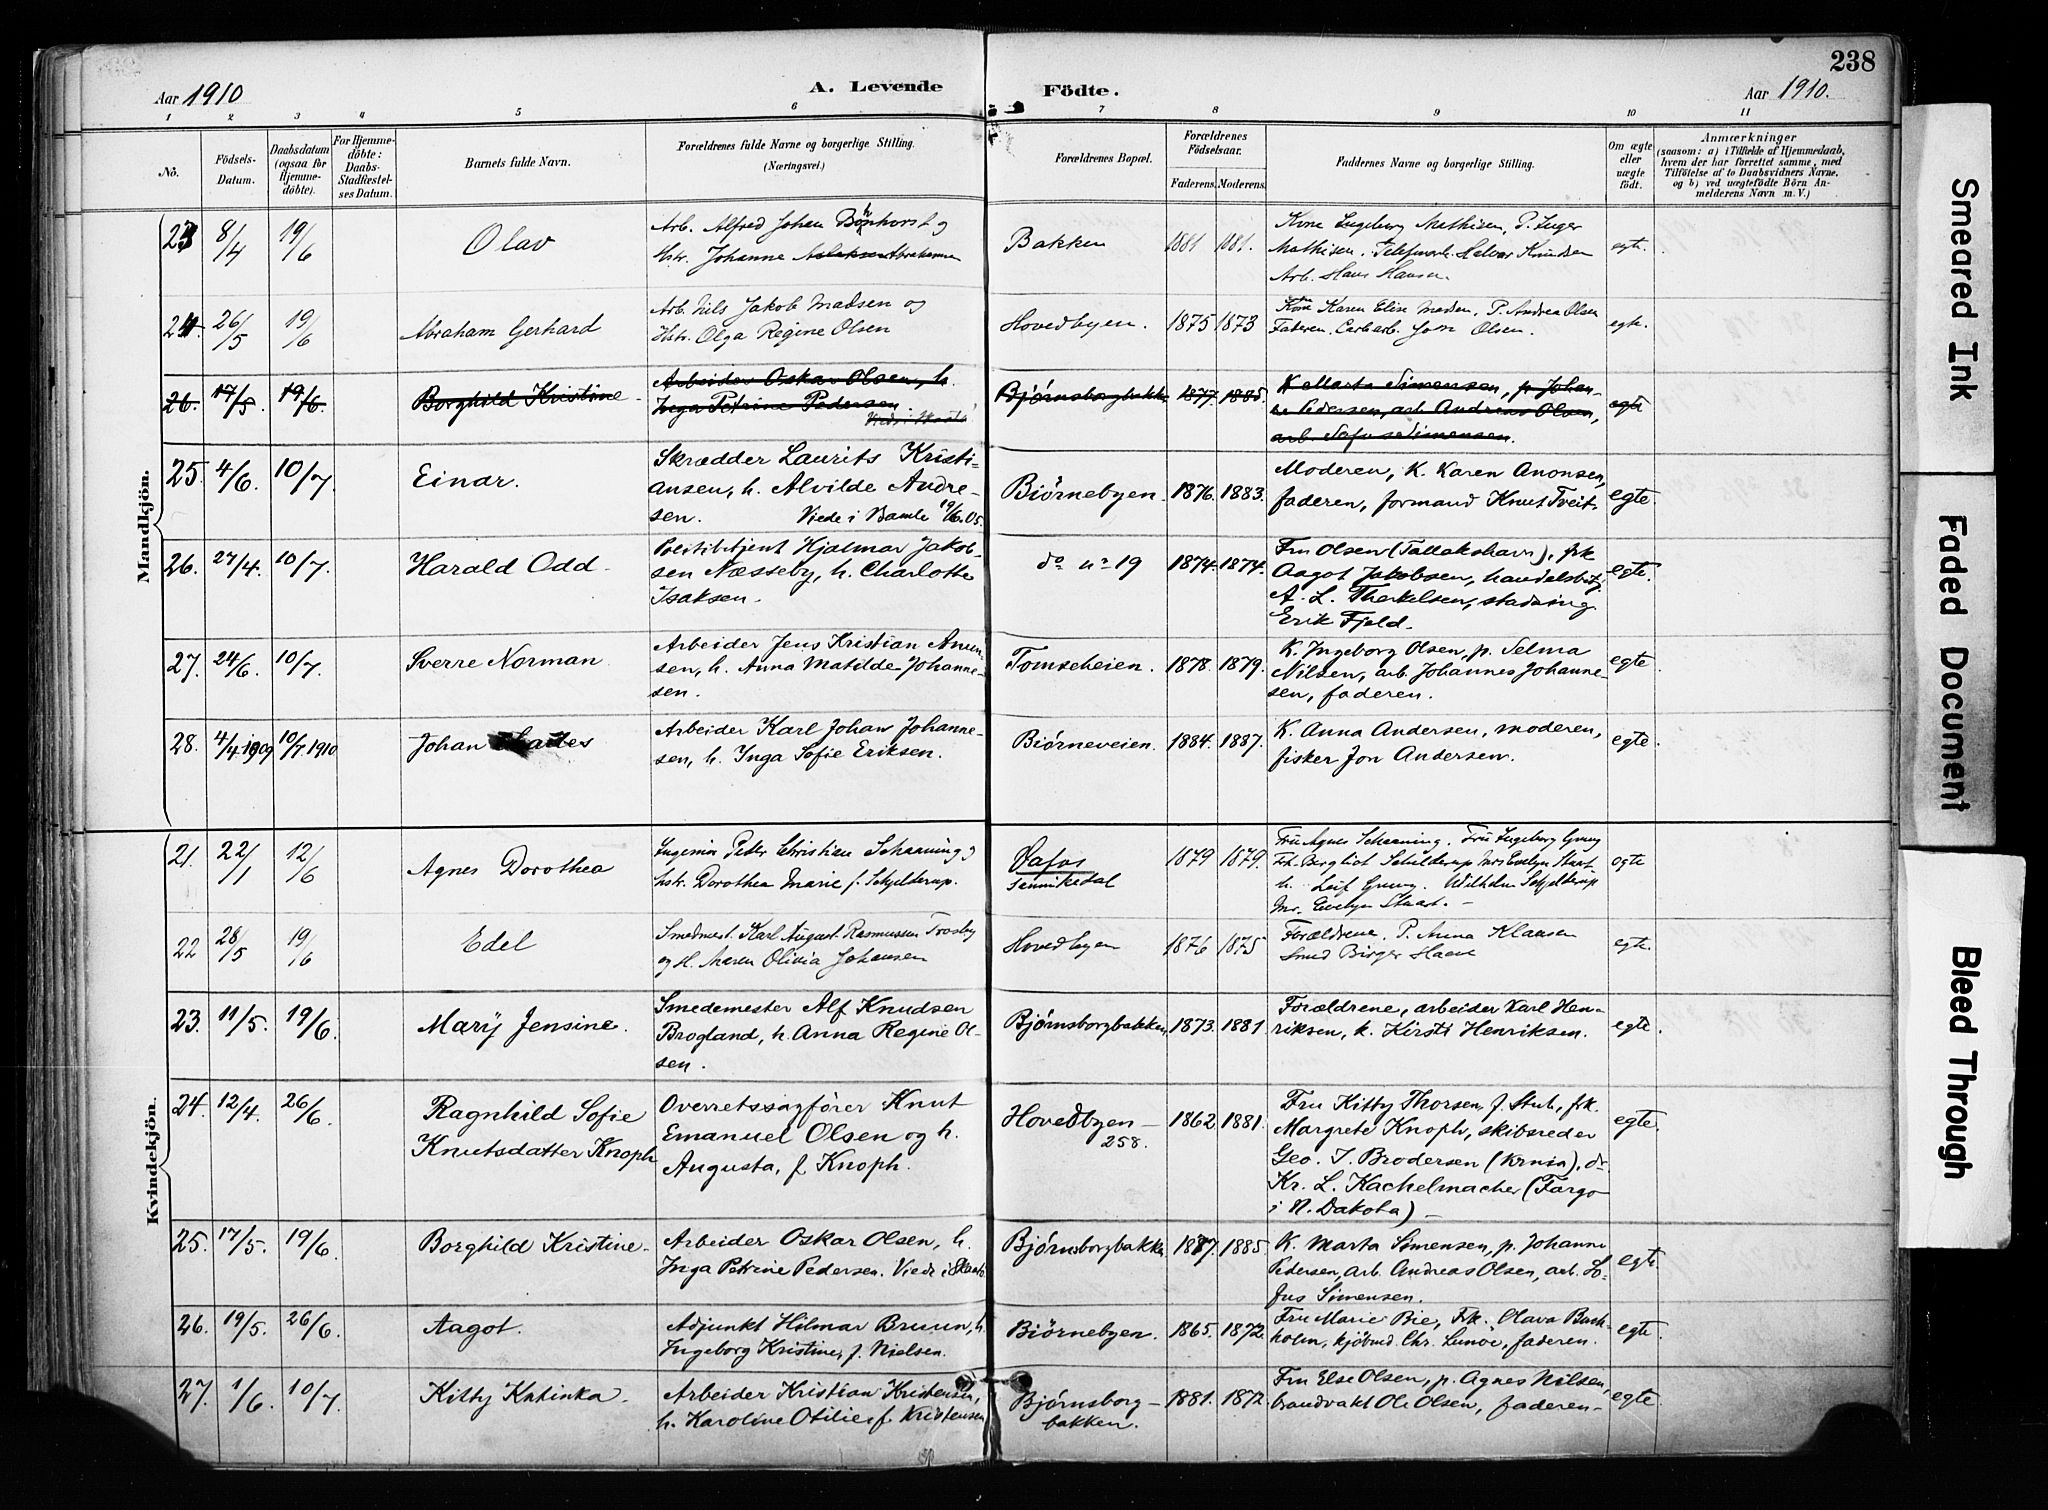 238
Aar 1910
A. Levende Födte.
Aar 1910.
1 2 3 4 5 6 7 8 9 10 11
No.
Födsels-Datum.
Daabsdatum (ogsaa för Hjemmedöbte).
For Hjemmedöbte: Daabs-Stadfæstelses Datum.
Barnets fulde Navn.
Forældrenes fulde Navne og borgerlige Stilling.
(Næringsvei.)
Forældrenes Bopæl.
Forældrenes Födselsaar.
Faderens. Moderens.
Faddernes Navne og borgerlige Stilling.
Om ægte eller uægte födt.
Anmærkninger
(saasom: a) i Tilfælde af Hjemmedaab, hvem der har forrettet samme, med Tilföielse af to Daabsvidners Navne, og b) ved uægtefödte Börn Anmelderens Navn m. V.)
Mandkjön.
23 8/4 19/6 Olav
Arb. Alfred Johan Bönhorst og
Hstr. Johanne Abrahamsen
Bakken 1881 1881.
Kone Ingeborg Mathisen, P. Inger
Mathisen, Telefonarb. Halvor Knudsen
Arb. Hans Hansen
egte.
24 26/5 19/6 Abraham Gerhard
Arb. Nils Jakob Madsen og
Hstr. Olga Regine Olsen
Hovedbyen. 1875 1873
Kone Karen Elise Madsen, P. Andrea Olsen
Faderen, Olsen.
egte.
26. 17/5. 19/6. Borghild Kristine
Arbeider Oskar Olsen, h.
Inga Petrine Pedersen
Bjørnsborgbakke 1877 1885.
K. Marta Simensen, p. Johan-
ne Pedersen, arb. Andreas Olsen,
arb. Simensen.
egte
25. 4/6. 10/7. Einar.
Skrædder Laurits Kristi-
ansen, h. Alvilde Andre-
sen. Viede i Bamle 19/6.05.
Biørnebyen. 1876. 1883.
Moderen, K. Karen Anonsen,
faderen, formand Knut Tveit.
egte.
26. 27/4. 10/7. Harald Odd.
Politibetjent Hjalmar Jakob-
sen Næsseby, h. Charlotte
Isaksen.
do nr 19 1874. 1874.
Fru Olsen (Tallakshavn), frk
Aagot Jakobsen, handelsbetj.
A. L. Therkelsen, stadsing
Erik Fjeld.
egte.
27. 24/6. 10/7. Sverre Norman.
Arbeider Jens Kristian Amun-
sen, h. Anna Matilde Johanne-
sen.
Tomseheien. 1878. 1879.
K. Ingeborg Olsen, p. Selma
Nilsen, arb. Johannes Johanne-
sen, faderen.
egte.
28. 4/4.1909 10/7.1910 Johan
Arbeider Karl Johan Johanne-
sen, h. Inga Sofie Eriksen.
Biørneveien. 1884. 1887.
K. Anna Andersen, moderen,
fisker Jon Andersen.
egte.
Kvindekjön.
21. 22/1 12/6 Agnes Dorothea
Ingeniør Peter Christian Schanning og
hstr. Dorothea Marie f. Schjelderup.
Dafos
Sannikedal
1879 1879.
Fru Agnes Schanning. Fru Ingeborg Gruvy
Frk. Bergliot Schjelderup Mrs Evelyn Stuart
h. Leif Wilhelm Schjelderup
Mr. Evelyn Stuart.
egte
22 28/5 19/6 Edel
Smedmest. Karl August Rasmussen Trosby
og H. Maren Olivia Johansen
Hovedbyen 1876 1875
Forældrene, P. Anna Klausen
Smed Birger Haave
egte.
23. 11/5. 19/6. Mary Jensine.
Smedemester Alf Knudsen
Brogland, h. Anna Regine Ol-
sen.
Bjørnsborgbakken, 1873. 1881.
Forældrene, arbeider Karl Hen-
riksen, k. Kirsti Henriksen.
egte.
24. 12/4. 26/6. Ragnhild Sofie
Knutsdatter Knoph
Overretssagfører Knut
Emanuel Olsen og h.
Augusta, f Knoph.
Hovedbyen
258.
1862 1881.
Fru Kitty Thorsen, f. Stub, frk.
Margrete Knoph, skibsreder
Geo. I. Brodersen (Krnia), dr
Kr. L. Kachelmacher (Fargo
i N. Dakota)
egte.
25. 17/5. 19/6. Borghild Kristine.
Arbeider Oskar Olsen, h.
Inga Petrine Pedersen. Viede i Skaatø
Bjørnsborgbakke 1877. 1885.
K. Marta Simensen, p. Johanne
Pedersen, arb. Andreas Olsen, arb. So-
fus Simensen.
egte.
26. 19/5. 26/6. Aagot.
Adjunkt Hilmar Bruun, h.
Ingeborg Kristine, f. Nielsen.
Biørnebyen. 1865. 1872.
Fru Marie Bie, Frk. Olava Buch-
holm, kjøbmd. Chr. Lunøe, faderen.
egte.
27. 1/6. 10/7. Kitty Katinka.
Arbeider Kristian Kristensen,
h. Karoline Otilie, f. Kristensen
Bjørnsborg-
bakken.
1881. 1872.
Fru Else Olsen, p. Agnes Nilsen,
brandvakt Ole Olsen, faderen.
egte.
Smeared Ink
Faded Document
Bleed Through